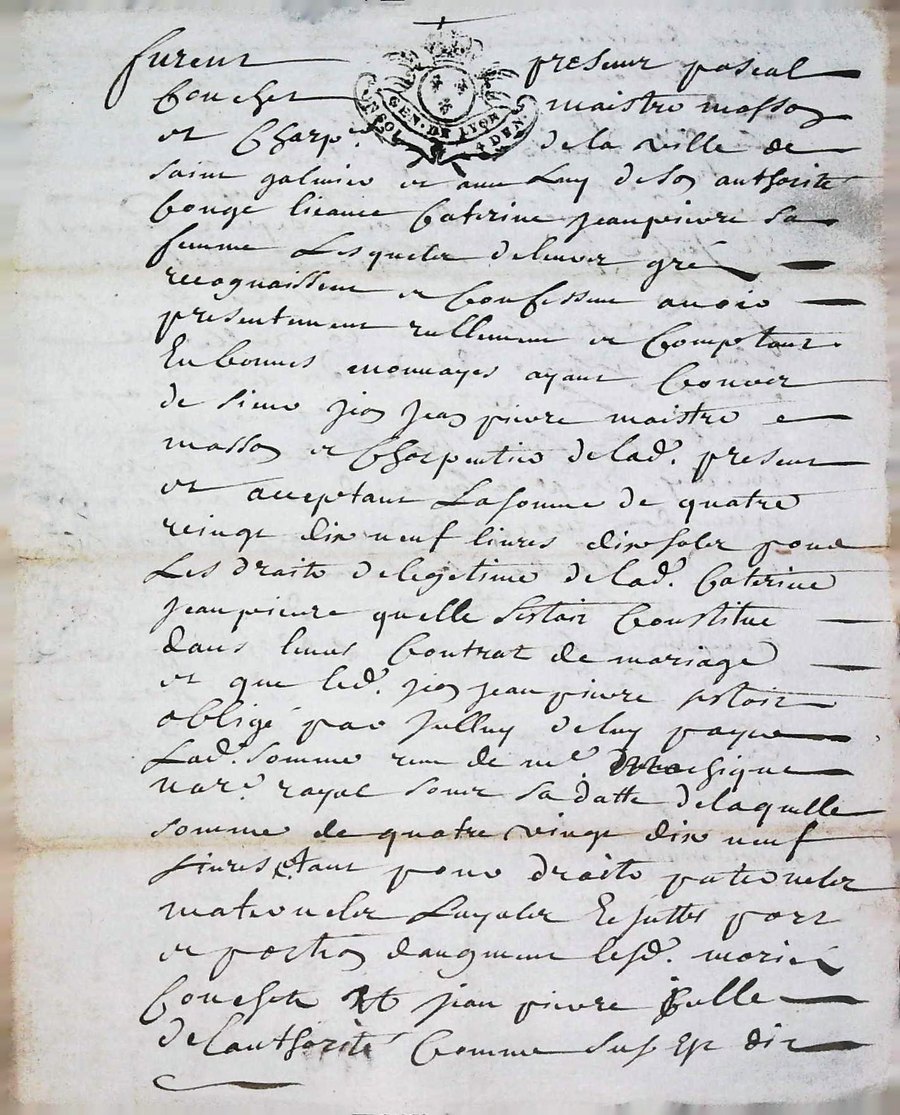 furent present pascal
GEN. DE LYON
4 DEN.
Bouchet maistre masson
et Charp.r de la ville de
saint galmier et avec Luy de son authorité
conge licance Caterine jeanpierre sa
femme Lesquels de leur gré
recognaissent et Confessent avoir
presentement reellement et Comptant
En bonnes monnayes ayant Cours
de sieur jean jeanpierre maistre
masson et Charpentier de lad. present
et acceptant La somme de quatre
vingt dix neuf livres dix sols pour
Les droits de legitime de lad. Caterine
jeanpierre quelle sestoit Constitue
dans leurs Contrat de mariage
et que led. jean jeanpierre sestoit
obligé par Jcelluy de luy payer
Lad. somme receu de me
nore. royal sous sa datte de laquelle
somme de quatre vingt dix neuf
Livres Estant pour droits paternels
maternels Layales Et juttes part
et portion daugment lesd. mariés
Bouchet Et jean pierre Jcelle
de lauthorité Comme sus Est dit